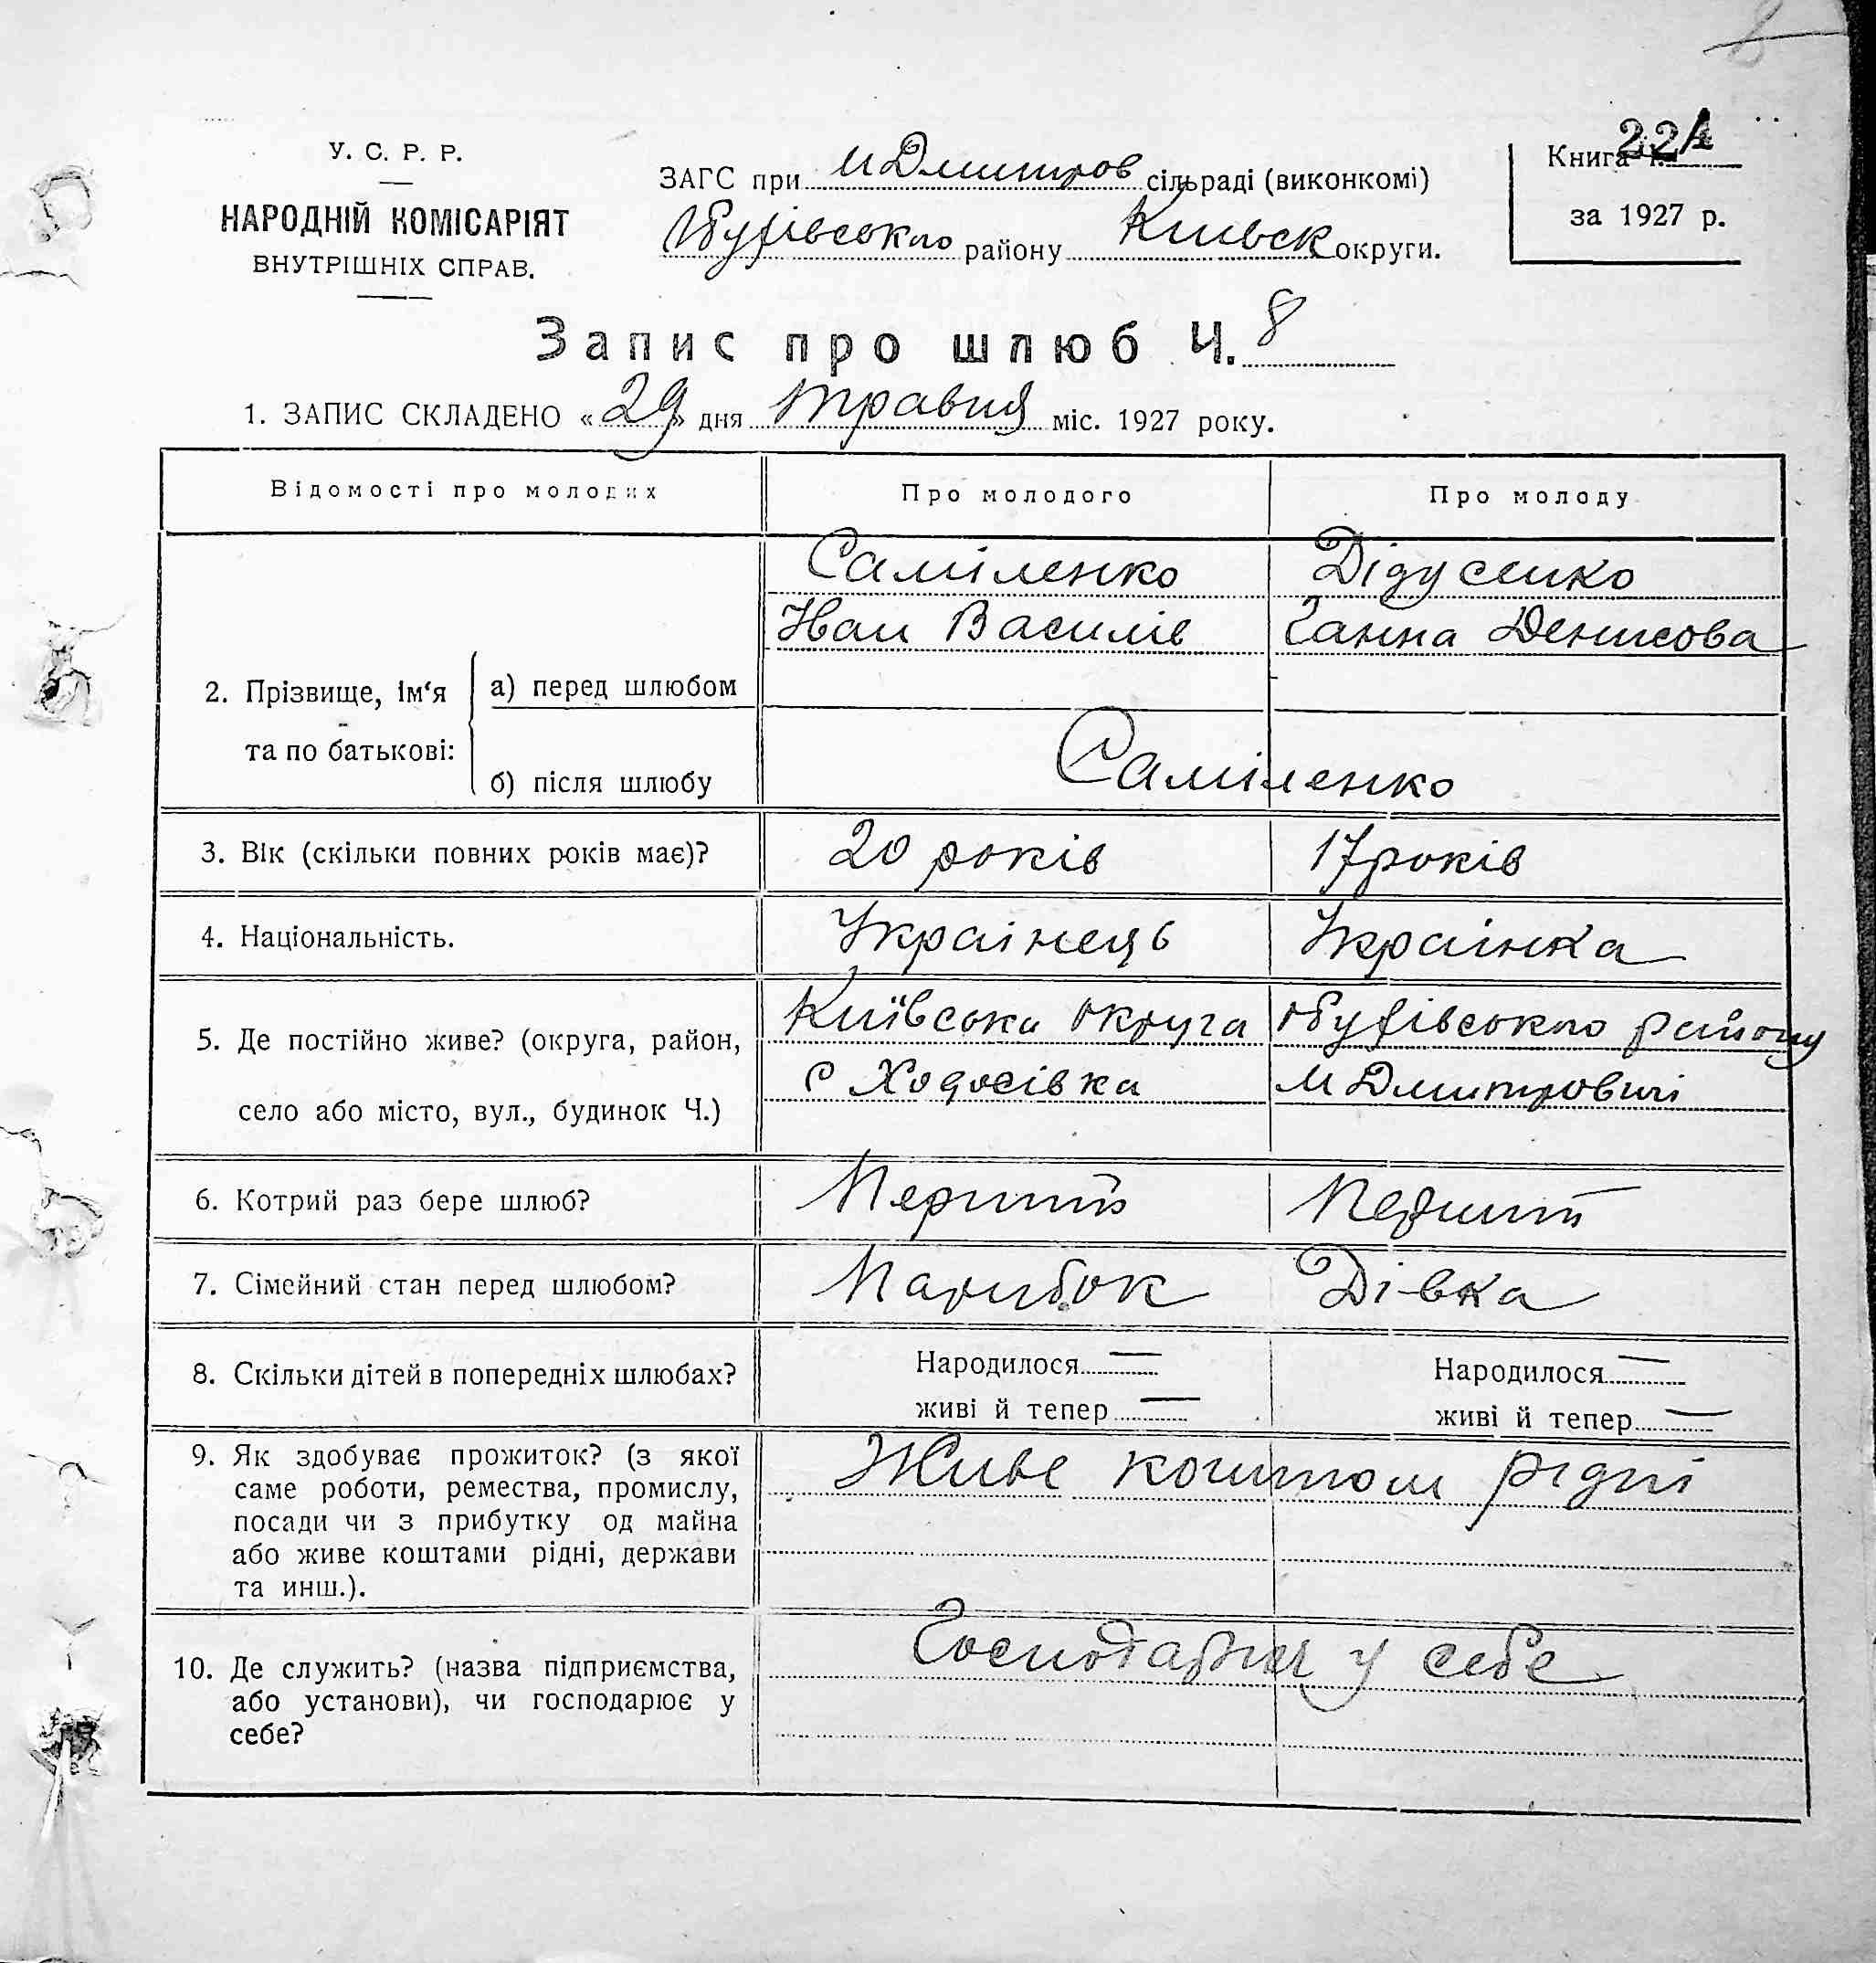 У. С. Р. Р.
НАРОДНІЙ КОМІСАРІЯТ
ВНУТРІШНІХ СПРАВ.
ЗАГС при М Дмитров сільраді (виконкомі)
Обухівського району Київськ округи.
Книга
за 1927 р.
Запис про шлюб Ч. 8
1. ЗАПИС СКЛАДЕНО « 29 » дня травня міс. 1927 року.
Відомості про молодих Про молодого Про молоду
Саміленко Дідусенко
Иван Василів Ганна Денисова
2. Прізвище, ім‘я а) перед шлюбом
та по батькові:
б) після шлюбу Саміленко
3. Вік (скільки повних років має)? 20 років 17 років
4. Національність. Украінець Украінка
5. Де постійно живе? (округа, район, Київська округа Обухівського району
село або місто, вул., будинок Ч.) С Ходосівка М Дмитровичі
6. Котрий раз бере шлюб? Перший Перший
7. Сімейний стан перед шлюбом? Парубок Дівка
8. Скільки дітей в попередніх шлюбах? Народилося — Народилося —
живі й тепер — живі й тепер —
9. Як здобуває прожиток? (з якої Живе коштом рідні
саме роботи, ремества, промислу,
посади чи з прибутку од майна
або живе коштами рідні, держави
та инш.).
10. Де служить? (назва підприємства, у себе
або установи), чи господарює у
себе?